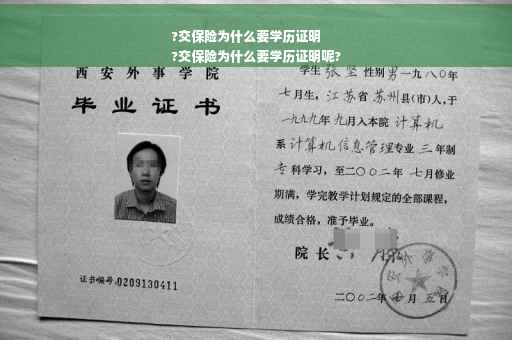 ?交保险为什么要学历证明
?交保险为什么要学历证明呢?
西安外事学院
毕业证书
证书编号:0209130411
学生 张坚 性别 男 一九八〇年
七月生, 江苏省 苏州县(市)人,于
一九九九年 九月入本院 计算机
系 计算机信息管理专业 三 年制
专 科学习, 至二〇〇二年 七月修业
期满, 学完教学计划规定的全部课程,
成绩合格, 准予毕业。
院长
二〇〇二年 七 月 五 日